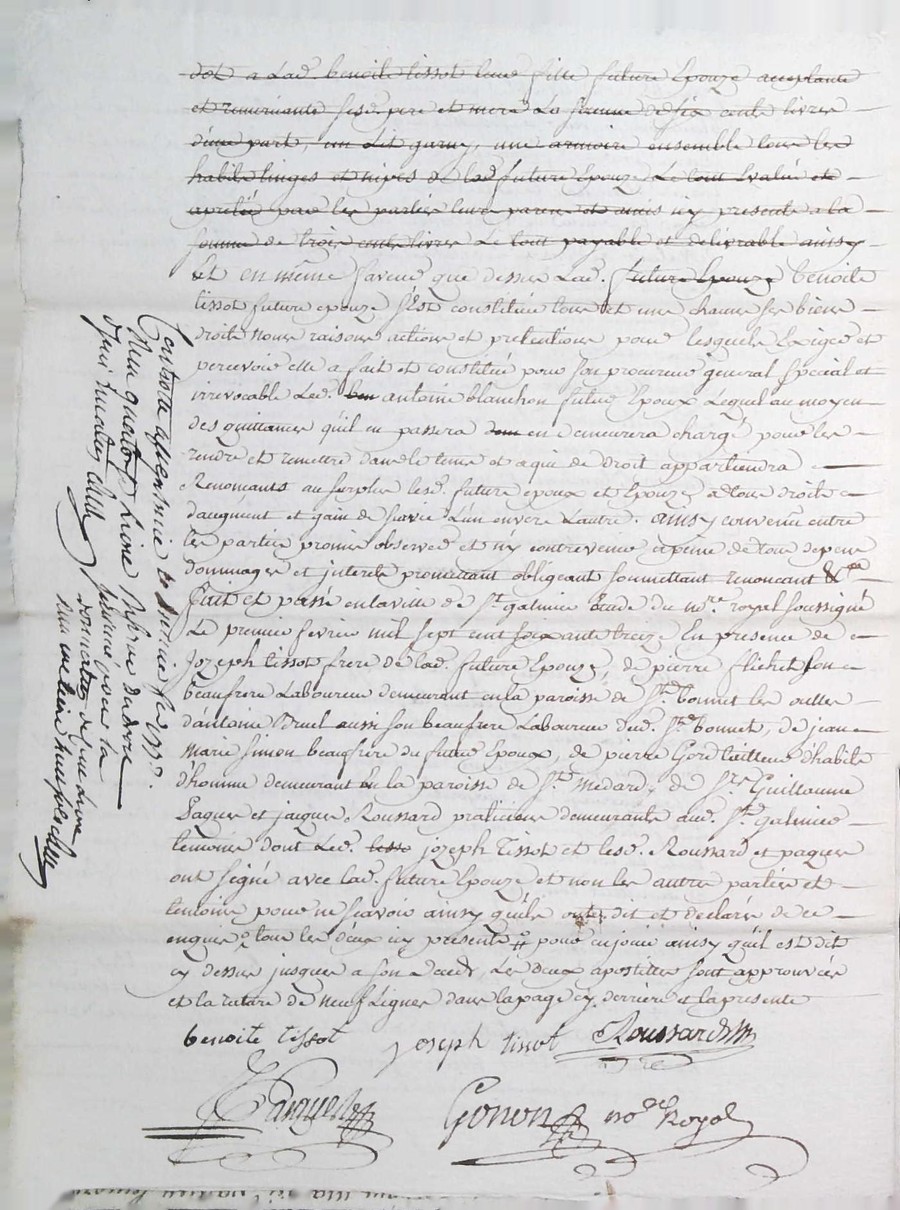 dot a Lad. benoite tissot leur fille future Epouze acceptante
et remerciante sesd. pere et mere La somme de six cents livres
d'une part, un Lit garny, une armoire ensemble tous les
habits linges et nipes de lad. future Epouze Le tout Evalué et
aprétié par les parties leurs parens et amis icy presents a la
somme de trois cents livres Le tout payable et delivrable ainsy
Et en même faveur que dessus Lad. future Epouze benoite
tissot future epouze s'Est constituée tous et un chacuns ses biens
droits noms raisons actions et pretentions pour lesquels Exiger et
percevoir elle a fait et constitué pour son procureur general special et
irrevocable Led. ben antoine blanchon futur Epoux Lequel au moyen
des quittances qu'il en passera dem en demeurera chargé pour les
rendre et remettre dans le tems et a qui de droit appartiendra
Renoncants au surplus lesd. future epoux et Epouze a tous droits
daugment et gain de survie L'un envers L'autre. ainsy convenu entre
les parties promis observer et n'y contrevenir a peine de tous depens
dommages et interets promettant obligeant soumettant renoncant &ca
Fait et passé en la ville de St. galmier Etude du nore. royal soussigné
Le premier fevrier mil sept cent soixante treize En presence de
Jozeph tissot frere de lad. future Epouze, de pierre flichet son
beaufrere Laboureur demeurant en la paroisse de St. bonnet les oulles
d'antoine Bruel aussi son beaufrere Laboureur dud. St. bonnet, de jean
marie simon beaufrere du futur Epoux, de pierre Gord tailleur d'habits
d'homme demeurant en la paroisse de St. Medard, de Srs. Guillaume
Paquet et jaques Roussard praticiens demeurants aud. St. galmier
temoins dont Led. tisso jozeph Tissot et lesd. Roussard et paquet
ont signé avec lad. future Epouze et non les autres parties et
temoins pour ne scavoir ainsy qu'ils ont dit et declaré de ce
enquis tous les deux icy presents # pour en jouir ainsy qu'il est dit
cy dessus jusques a son decedz, Les deux apostilles sont approuvées
et la rature de neuf Lignes dans la page cy derrière et la presente
benoite tissot Joseph tissot Roussard
Paquet Gonon nore Royal
Controlle a St galmier le
fevrier 1773.